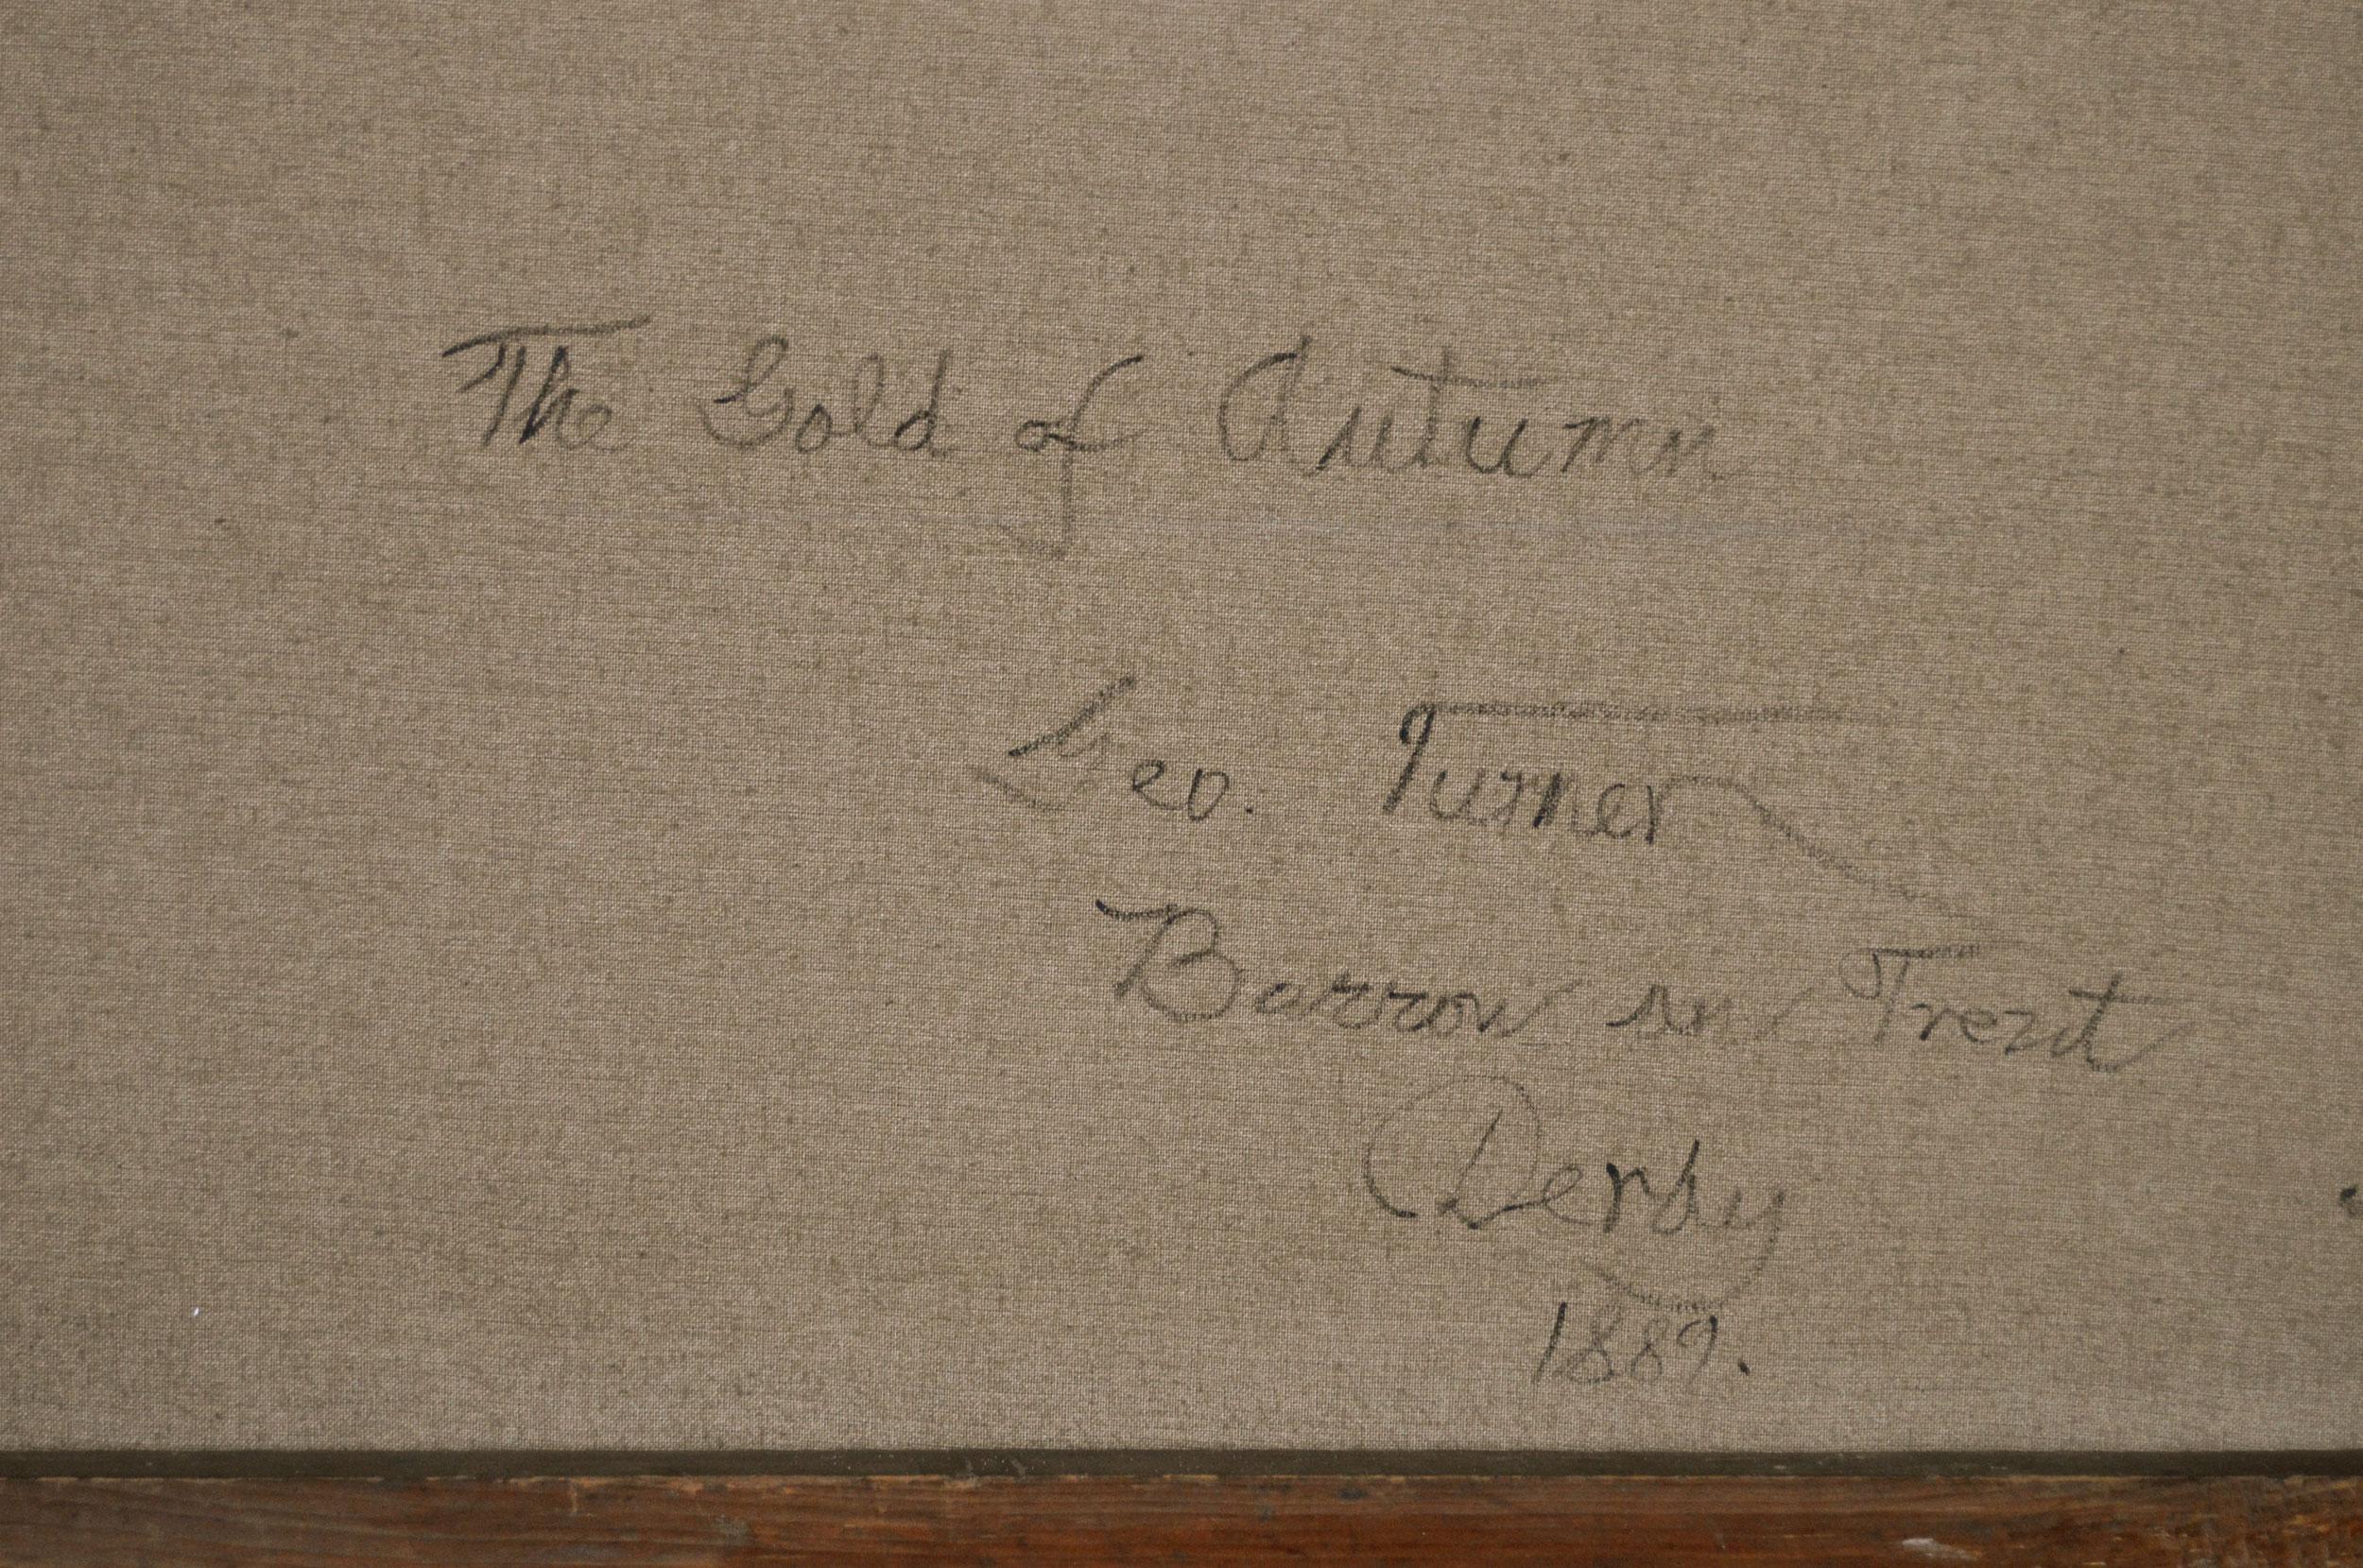 The Gold of Autumn
Geo. Turner
Barrow on Trent
Derby
1889.